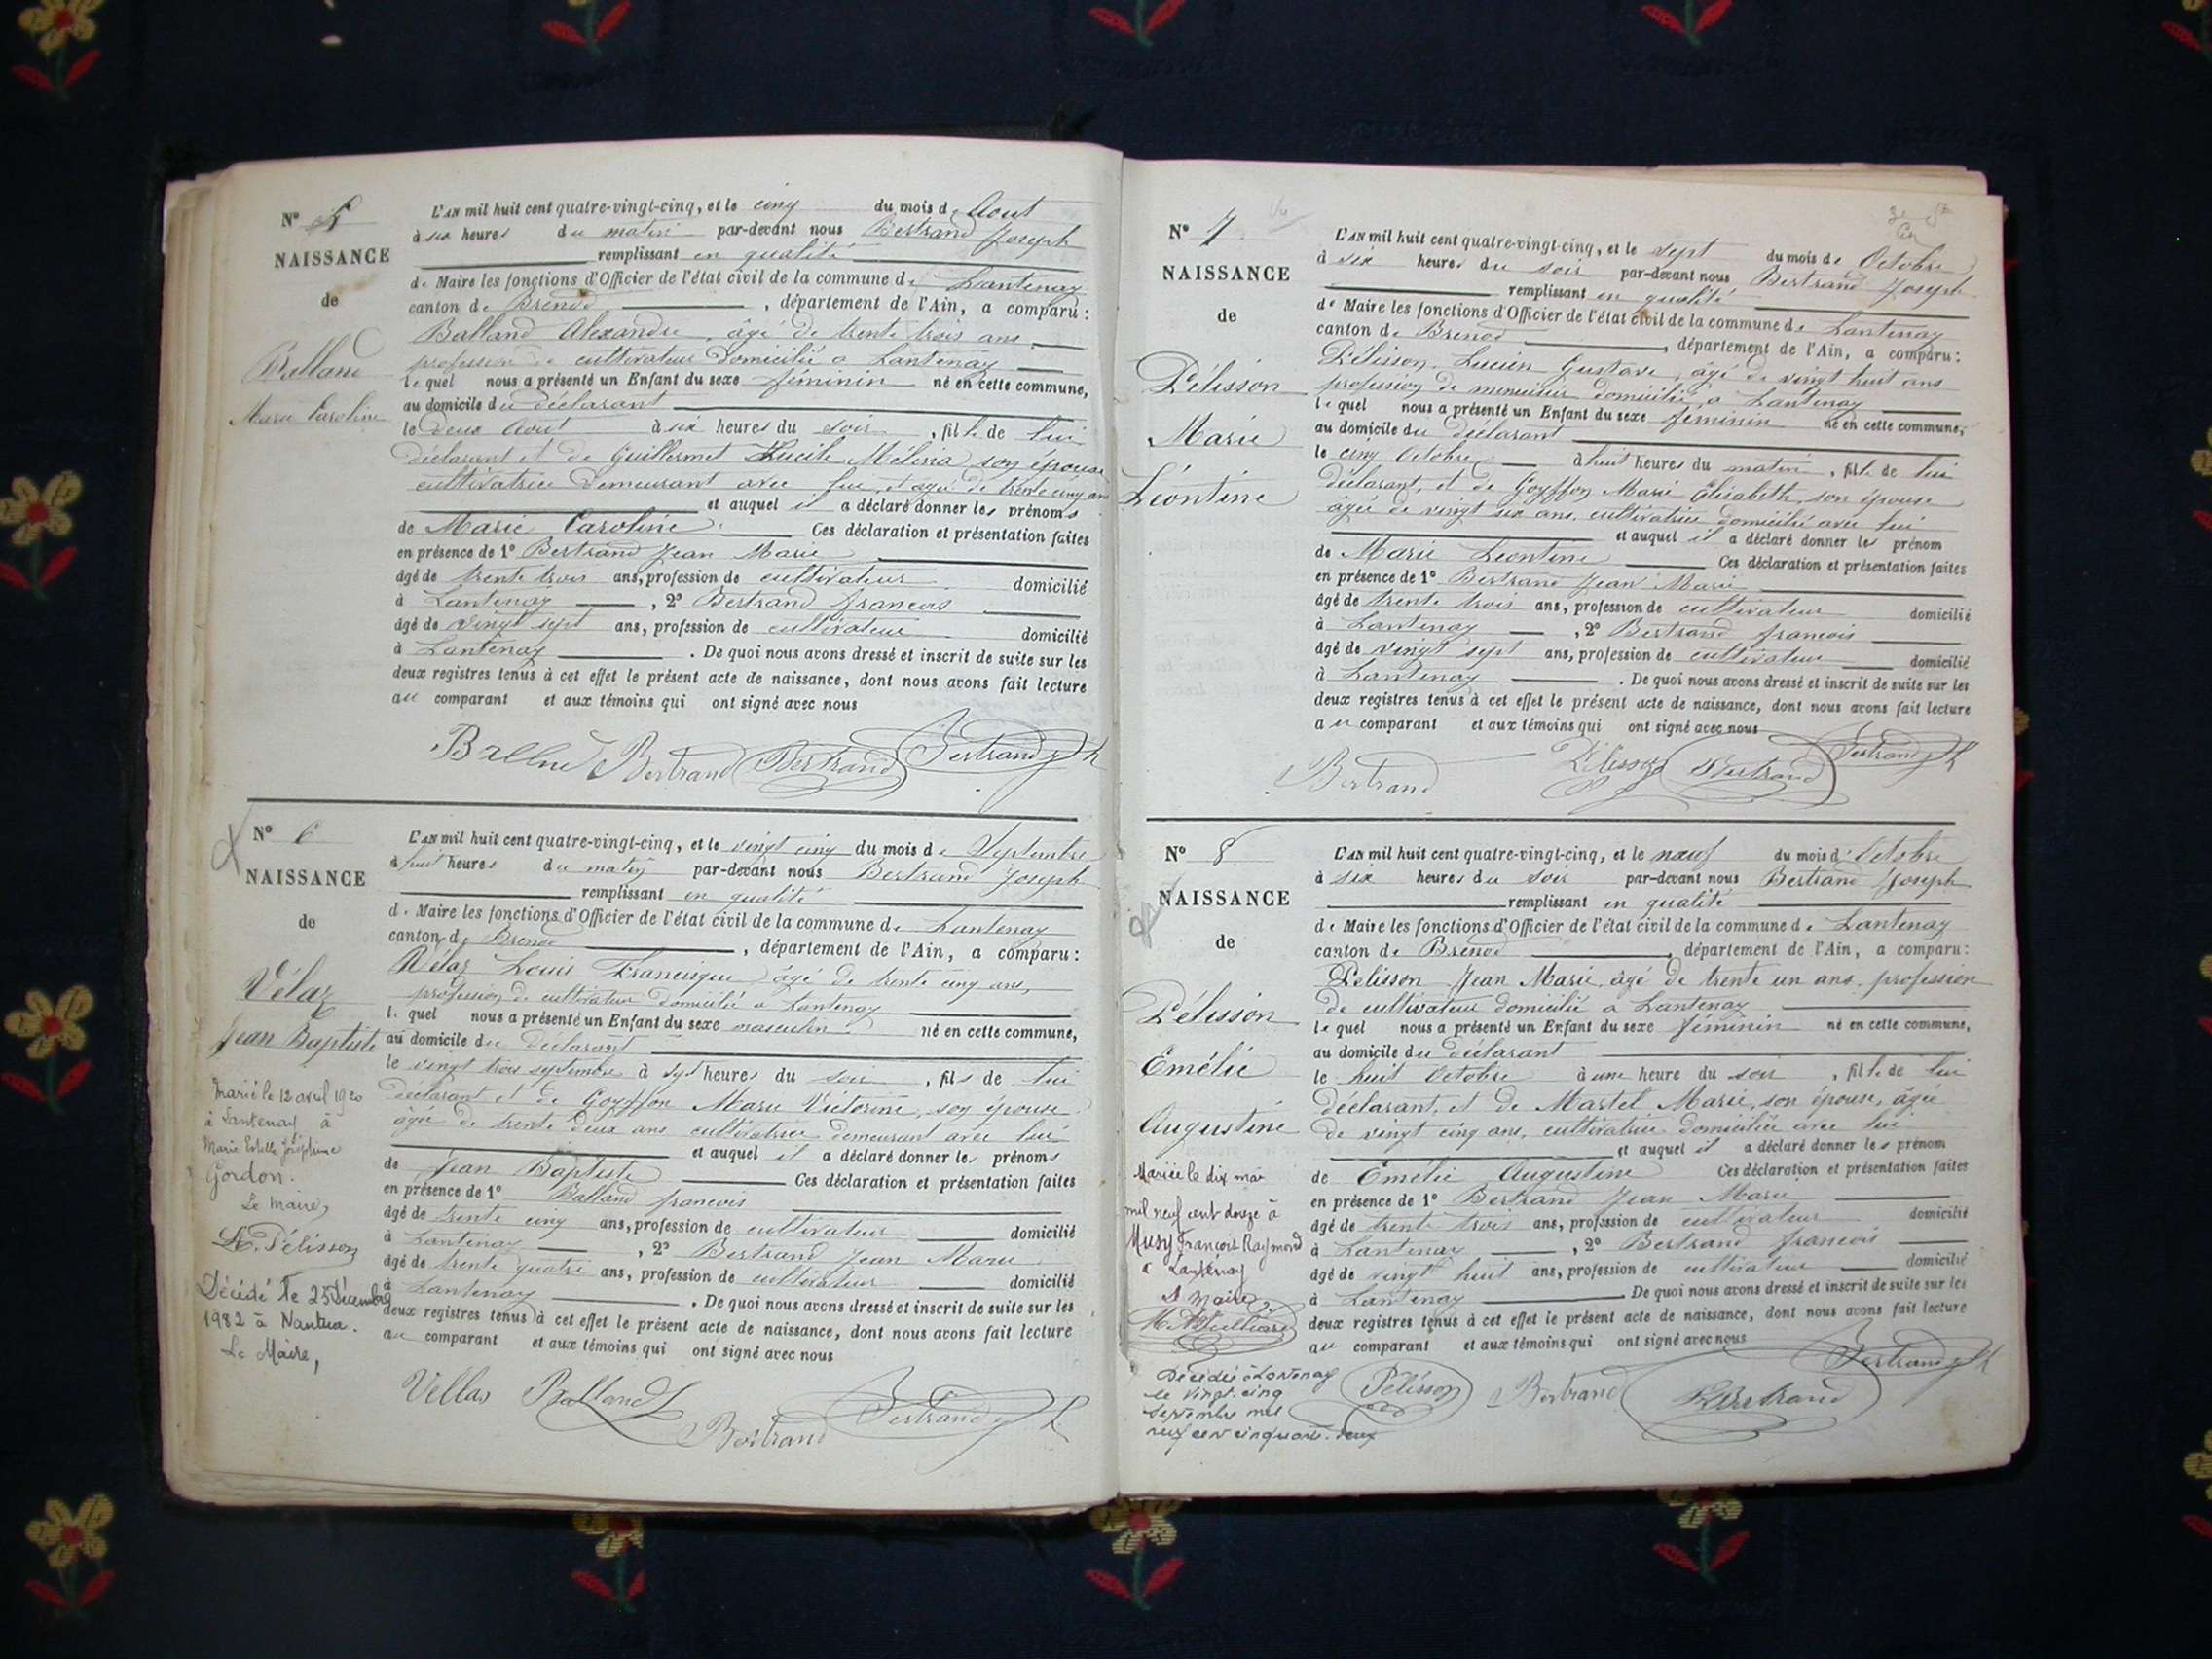 N° 5
NAISSANCE
de
Balland
Marie Caroline
L'AN mil huit cent quatre-vingt-cinq, et le cinq du mois d Aout
à six heures du matin par-devant nous Bertrand Joseph
remplissant en qualité
de Maire les fonctions d'Officier de l'état civil de la commune de Lantenay
canton de Brenod, département de l'Ain, a comparu :
Balland Alexandre, âgé de trente trois ans,
profession de cultivateur domicilié a Lantenay
lequel nous a présenté un Enfant du sexe féminin né en cette commune,
au domicile du déclarant
le deux Aout à six heures du soir, fille de lui
déclarant et de Guillermet Lucile Mélina son épouse
cultivatrice demeurant avec lui, et agée de trente cinq ans
et auquel il a déclaré donner les prénoms
de Marie Caroline. Ces déclaration et présentation faites
en présence de 1° Bertrand Jean Marie
âgé de trente trois ans, profession de cultivateur domicilié
à Lantenay, 2° Bertrand françois
âgé de vingt sept ans, profession de cultivateur domicilié
à Lantenay. De quoi nous avons dressé et inscrit de suite sur les
deux registres tenus à cet effet le présent acte de naissance, dont nous avons fait lecture
au comparant et aux témoins qui ont signé avec nous
Balland Bertrand Bertrand Bertrand Jh
N° 6
NAISSANCE
de
Vélaz
Jean Baptiste
Marié le 12 avril 1920
à Lantenay à
Marie Estelle Joséphine
Gordon.
Le Maire,
L. Pélisson
Décédé le 25 Décembre
1982 à Nantua.
Le Maire,
L'AN mil huit cent quatre-vingt-cinq, et le vingt cinq du mois de Septembre
à huit heures du matin par-devant nous Bertrand Joseph
remplissant en qualité
de Maire les fonctions d'Officier de l'état civil de la commune de Lantenay
canton de Brenod, département de l'Ain, a comparu :
Vélaz Louis Francisque, âgé de trente cinq ans,
profession de cultivateur domicilié a Lantenay
lequel nous a présenté un Enfant du sexe masculin né en cette commune,
au domicile du déclarant
le vingt trois septembre à sept heures du soir, fils de lui
déclarant et de Goyffon Marie Victorine, son épouse
âgée de trente deux ans cultivatrice demeurant avec lui
et auquel il a déclaré donner les prénoms
de Jean Baptiste Ces déclaration et présentation faites
en présence de 1° Balland francois
âgé de trente cinq ans, profession de cultivateur domicilié
à Lantenay, 2° Bertrand Jean Marie
âgé de trente quatre ans, profession de cultivateur domicilié
à Lantenay. De quoi nous avons dressé et inscrit de suite sur les
deux registres tenus à cet effet le présent acte de naissance, dont nous avons fait lecture
au comparant et aux témoins qui ont signé avec nous
Vellas Balland Bertrand Bertrand Jh
N° 7
NAISSANCE
de
Pélisson
Marie
Léontine
L'AN mil huit cent quatre-vingt-cinq, et le sept du mois de Octobre
à six heures du soir par-devant nous Bertrand Joseph
remplissant en qualité
de Maire les fonctions d'Officier de l'état civil de la commune de Lantenay
canton de Brenod, département de l'Ain, a comparu :
Pélisson Lucien Gustave, âgé de vingt huit ans
profession de menuisier domicilié a Lantenay
lequel nous a présenté un Enfant du sexe féminin né en cette commune,
au domicile du déclarant
le cinq Octobre à huit heures du matin, fille de lui
déclarant, et de Goyffon Marie Elisabeth, son épouse
âgée de vingt six ans, cultivatrice domicilié avec lui
et auquel il a déclaré donner les prénom
de Marie Léontine Ces déclaration et présentation faites
en présence de 1° Bertrand Jean Marie
âgé de trente trois ans, profession de cultivateur domicilié
à Lantenay, 2° Bertrand francois
âgé de vingt sept ans, profession de cultivateur domicilié
à Lantenay. De quoi nous avons dressé et inscrit de suite sur les
deux registres tenus à cet effet le présent acte de naissance, dont nous avons fait lecture
au comparant et aux témoins qui ont signé avec nous
Bertrand Pélisson Bertrand Bertrand Jh
N° 8
NAISSANCE
de
Pélisson
Emélie
Augustine
Mariée le dix mai
mil neuf cent douze à
Musy François Raymond
à Lantenay
Le Maire
Décédée à Lantenay
le vingt-cinq
Septembre mil
neuf cent cinquante-deux
L'AN mil huit cent quatre-vingt-cinq, et le nœuf du mois d'Octobre
à six heures du soir par-devant nous Bertrand Joseph
remplissant en qualité
de Maire les fonctions d'Officier de l'état civil de la commune de Lantenay
canton de Brenod, département de l'Ain, a comparu :
Pelisson Jean Marie, âgé de trente un ans, profession
de cultivateur domicilié a Lantenay
lequel nous a présenté un Enfant du sexe féminin né en cette commune,
au domicile du déclarant
le huit Octobre à une heure du soir, fille de lui
déclarant, et de Martel Marie, son épouse, âgée
de vingt cinq ans, cultivatrice domiciliée avec lui
et auquel il a déclaré donner les prénom
de Emélie Augustine Ces déclaration et présentation faites
en présence de 1° Bertrand Jean Marie
âgé de trente trois ans, profession de cultivateur domicilié
à Lantenay, 2° Bertrand francois
âgé de vingt huit ans, profession de cultivateur domicilié
à Lantenay. De quoi nous avons dressé et inscrit de suite sur les
deux registres tenus à cet effet le présent acte de naissance, dont nous avons fait lecture
au comparant et aux témoins qui ont signé avec nous
Pélisson Bertrand Bertrand Bertrand Jh